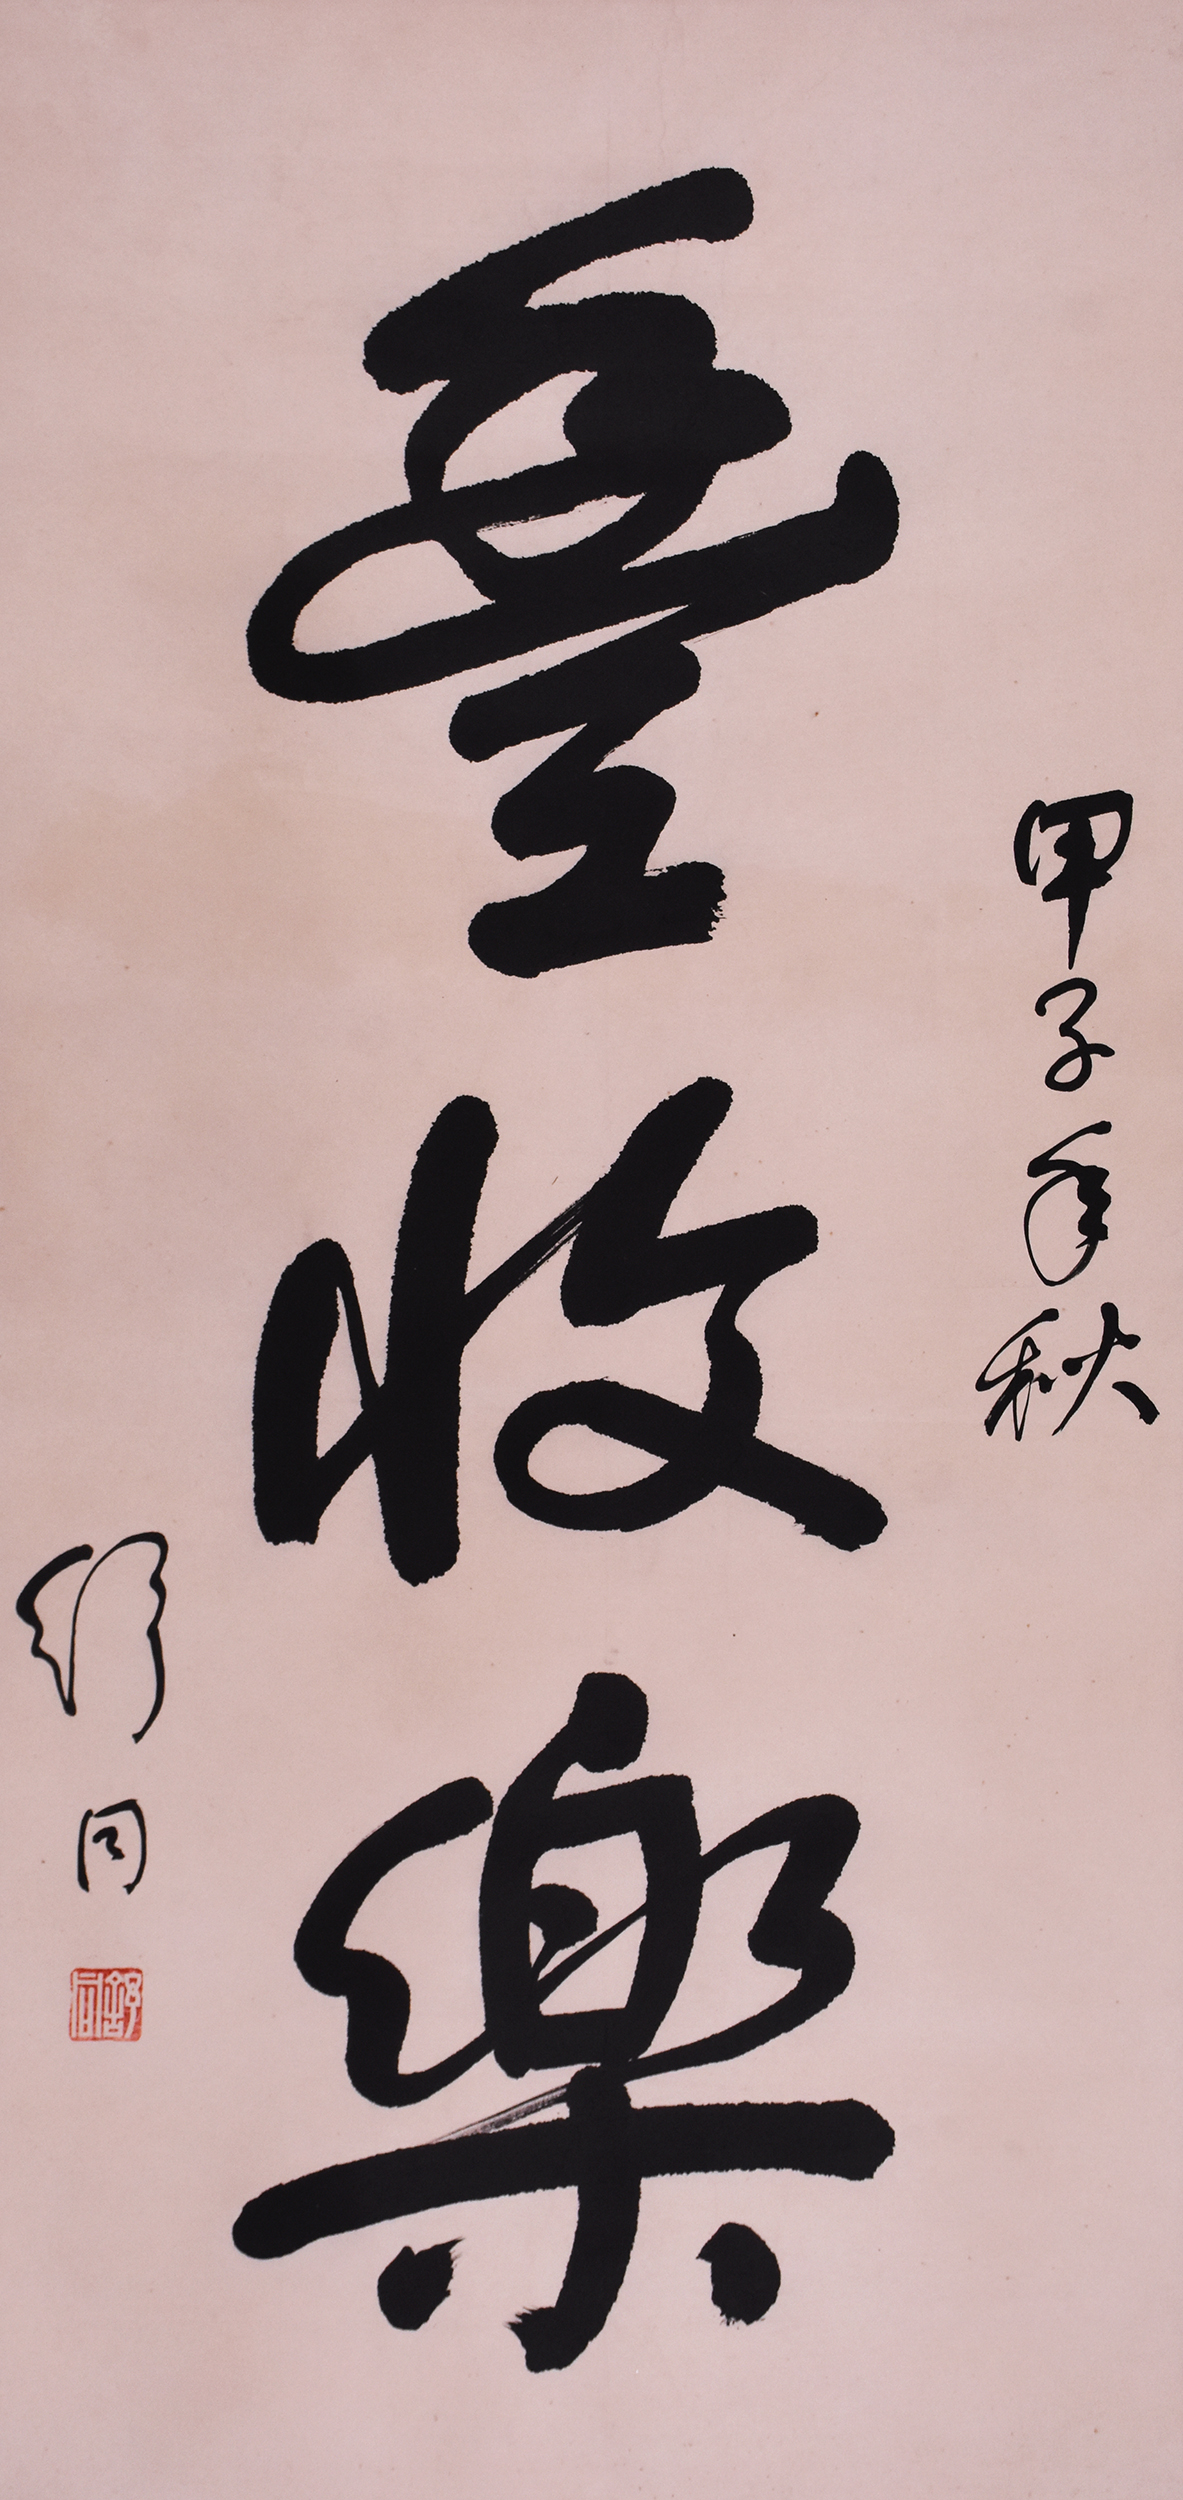 甲子年秋
豐收樂
舒同
舒同